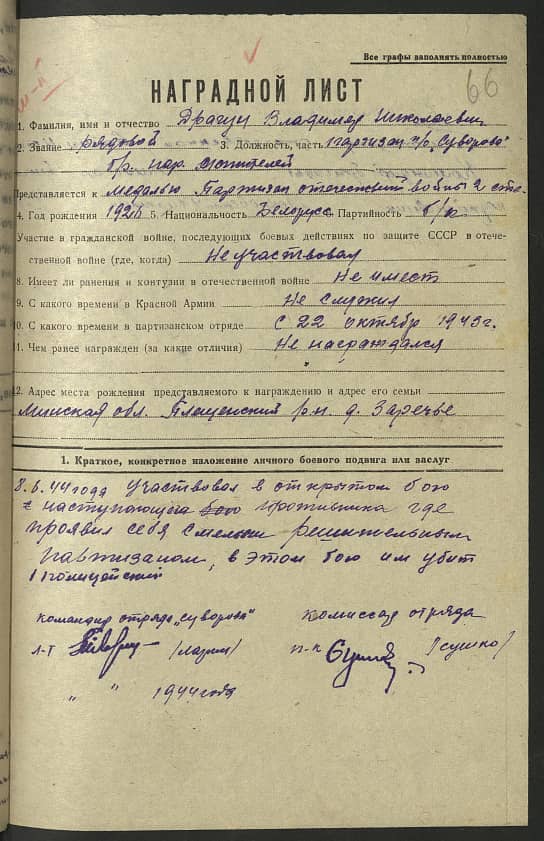 Все графы заполнять полностью
66
НАГРАДНОЙ ЛИСТ
1. Фамилия, имя и отчество Драгун Владимир Николаевич
2. Звание рядовой 3. Должность, часть партизан п/о „Суворова"
бр. нар. мстителей
Представляется к медалью Партизан отечествений войны 2 сте.
4. Год рождения 1926 5. Национальность Белорусс Партийность б/п
Участие в гражданской войне, последующих боевых действиях по защите СССР в отече-
ственной войне (где, когда) Не участвовал
8. Имеет ли ранения и контузии в отечественной войне Не имеет
9. С какого времени в Красной Армии Не служил
10. С какого времени в партизанском отряде С 22 октябр 1943 г.
11. Чем ранее награжден (за какие отличия) Не награждался
12. Адрес места рождения представляемого к награждению и адрес его семьи
Минская обл. Плещенский р-н. д. Заречье
1. Краткое, конкретное изложение личного боевого подвига или заслуг
8.6.44 года Участвовал в открытом бою
с наступающий противника где
проявил себя смелым решительным
партизаном, в этом бою им убит
1 полицейский
командир отряда „Суворова" комиссар отряда
л-т /лазнин/ п-к /сушко/
„ " 1944 года